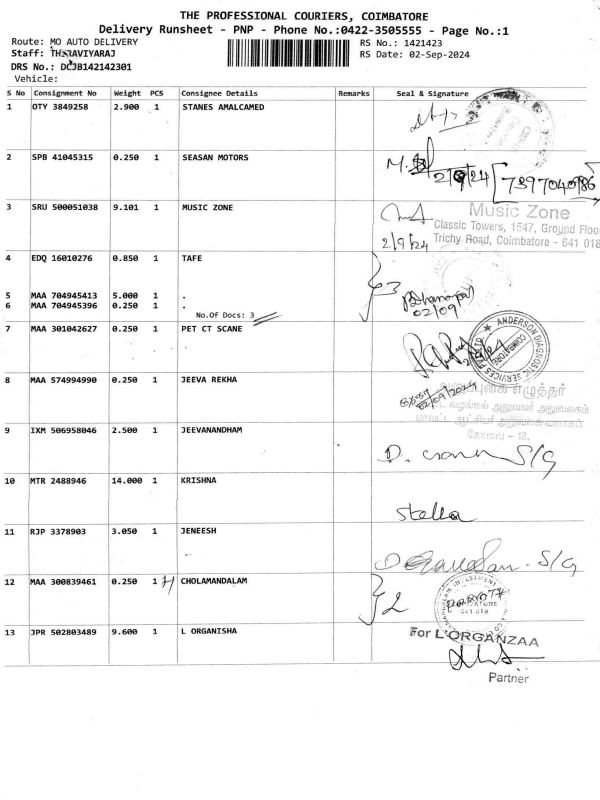 THE PROFESSIONAL COURIERS, COIMBATORE
Delivery Runsheet - PNP - Phone No.:0422-3505555 - Page No.:1
Route: MO AUTO DELIVERY
RS No.: 1421423
Staff: THIRAVIYARAJ
RS Date: 02-Sep-2024
DRS No.: DCJB142142301
Vehicle:
S No Consignment No Weight PCS Consignee Details Remarks Seal & Signature
1 OTY 3849258 2.900 1 STANES AMALCAMED
2 SPB 41045315 0.250 1 SEASAN MOTORS
2/9/24 7397040986
3 SRU 500051038 9.101 1 MUSIC ZONE
Music Zone
Classic Towers, 1547, Ground Floor
2/9/24 Trichy Road, Coimbatore - 641 018
4 EDQ 16010276 0.850 1 TAFE
3
5 MAA 704945413 5.000 1 .
Dhanapal
6 MAA 704945396 0.250 1 .
02/09
No.Of Docs: 3
7 MAA 301042627 0.250 1 PET CT SCANE
ANDERSON DIAGNOSTIC SERVICES
COIMBATORE
8 MAA 574994990 0.250 1 JEEVA REKHA
02/09/2024
எழுத்தர்
வழங்கல் அலுவலர் அலுவலகம்
மாவட்ட ஆட்சியர் அலுவலக வளாகம்
கோவை - 18.
9 IXM 506958046 2.500 1 JEEVANANDHAM
S/G
10 MTR 2488946 14.000 1 KRISHNA
Stella
11 RJP 3378903 3.050 1 JENEESH
S/G
12 MAA 300839461 0.250 1 CHOLAMANDALAM
2
COIMBATORE
641 018
13 JPR 502803489 9.600 1 L ORGANISHA
For L'ORGANZAA
Partner